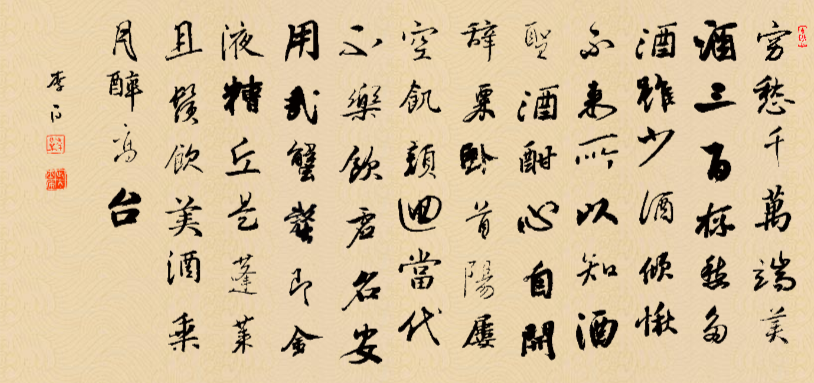 窮愁千萬端美
酒三百杯愁多
酒雖少酒傾愁
不來所以知酒
聖酒酣心自開
辭粟臥首陽屢
空飢顏迴當代
不樂飲虛名安
用哉蟹螯即金
液糟丘是蓬萊
且須飲美酒乘
月醉高台
李白